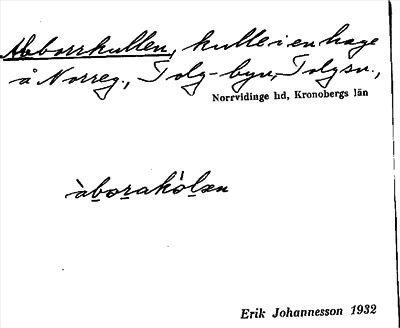 Abborrkullen, kulle i en hage
å Norreg., Tolg-byn, Tolg sn.,
Norrvidinge hd, Kronobergs län
àborakóẁlæn
Erik Johannesson 1932